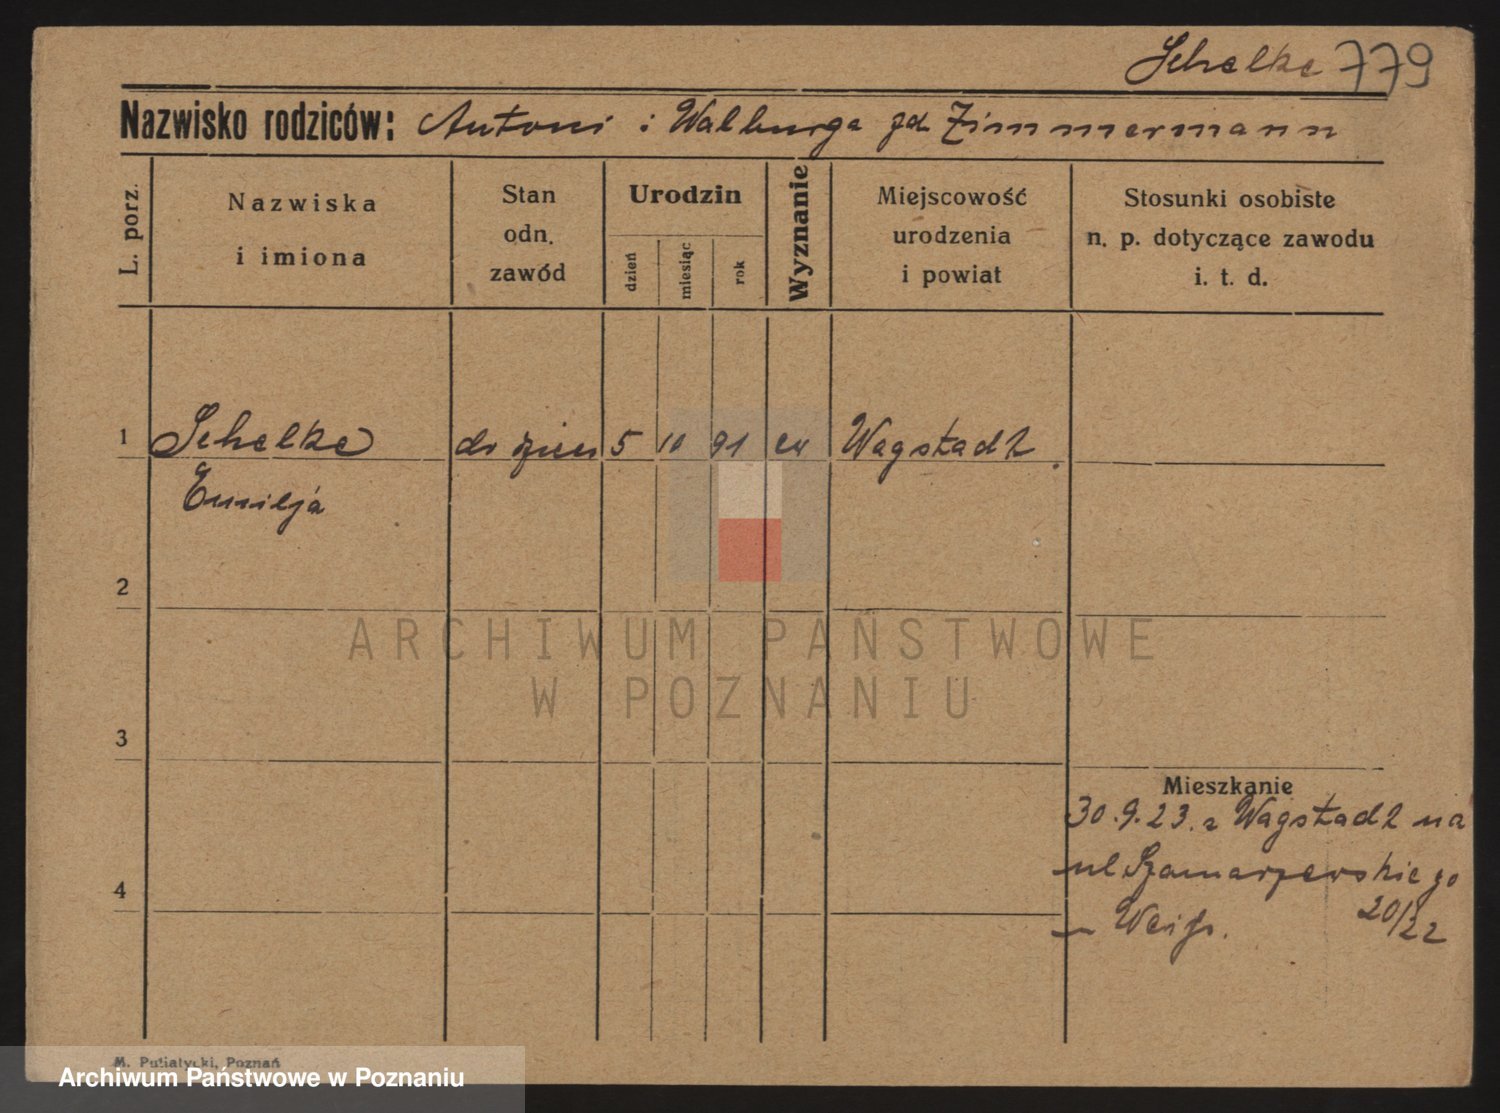 Schelke 779
Nazwisko rodziców: Antoni i Walburga zd Zimmermann
L. porz.
Nazwiska
i imiona
Stan
odn.
zawód
Urodzin
dzień
miesiąc
rok
Wyznanie
Miejscowość
urodzenia
i powiat
Stosunki osobiste
n. p. dotyczące zawodu
i. t. d.
1 Schelke 5 10 91 ew Wagstadt
Emilja
2
ARCHIWUM PAŃSTWOWE
W POZNANIU
3
Mieszkanie
30.9.23. z Wagstadt na
ul Szamarzewskiego
20/22
4
u Weiß.
M. Putiatycki, Poznań
Archiwum Państwowe w Poznaniu